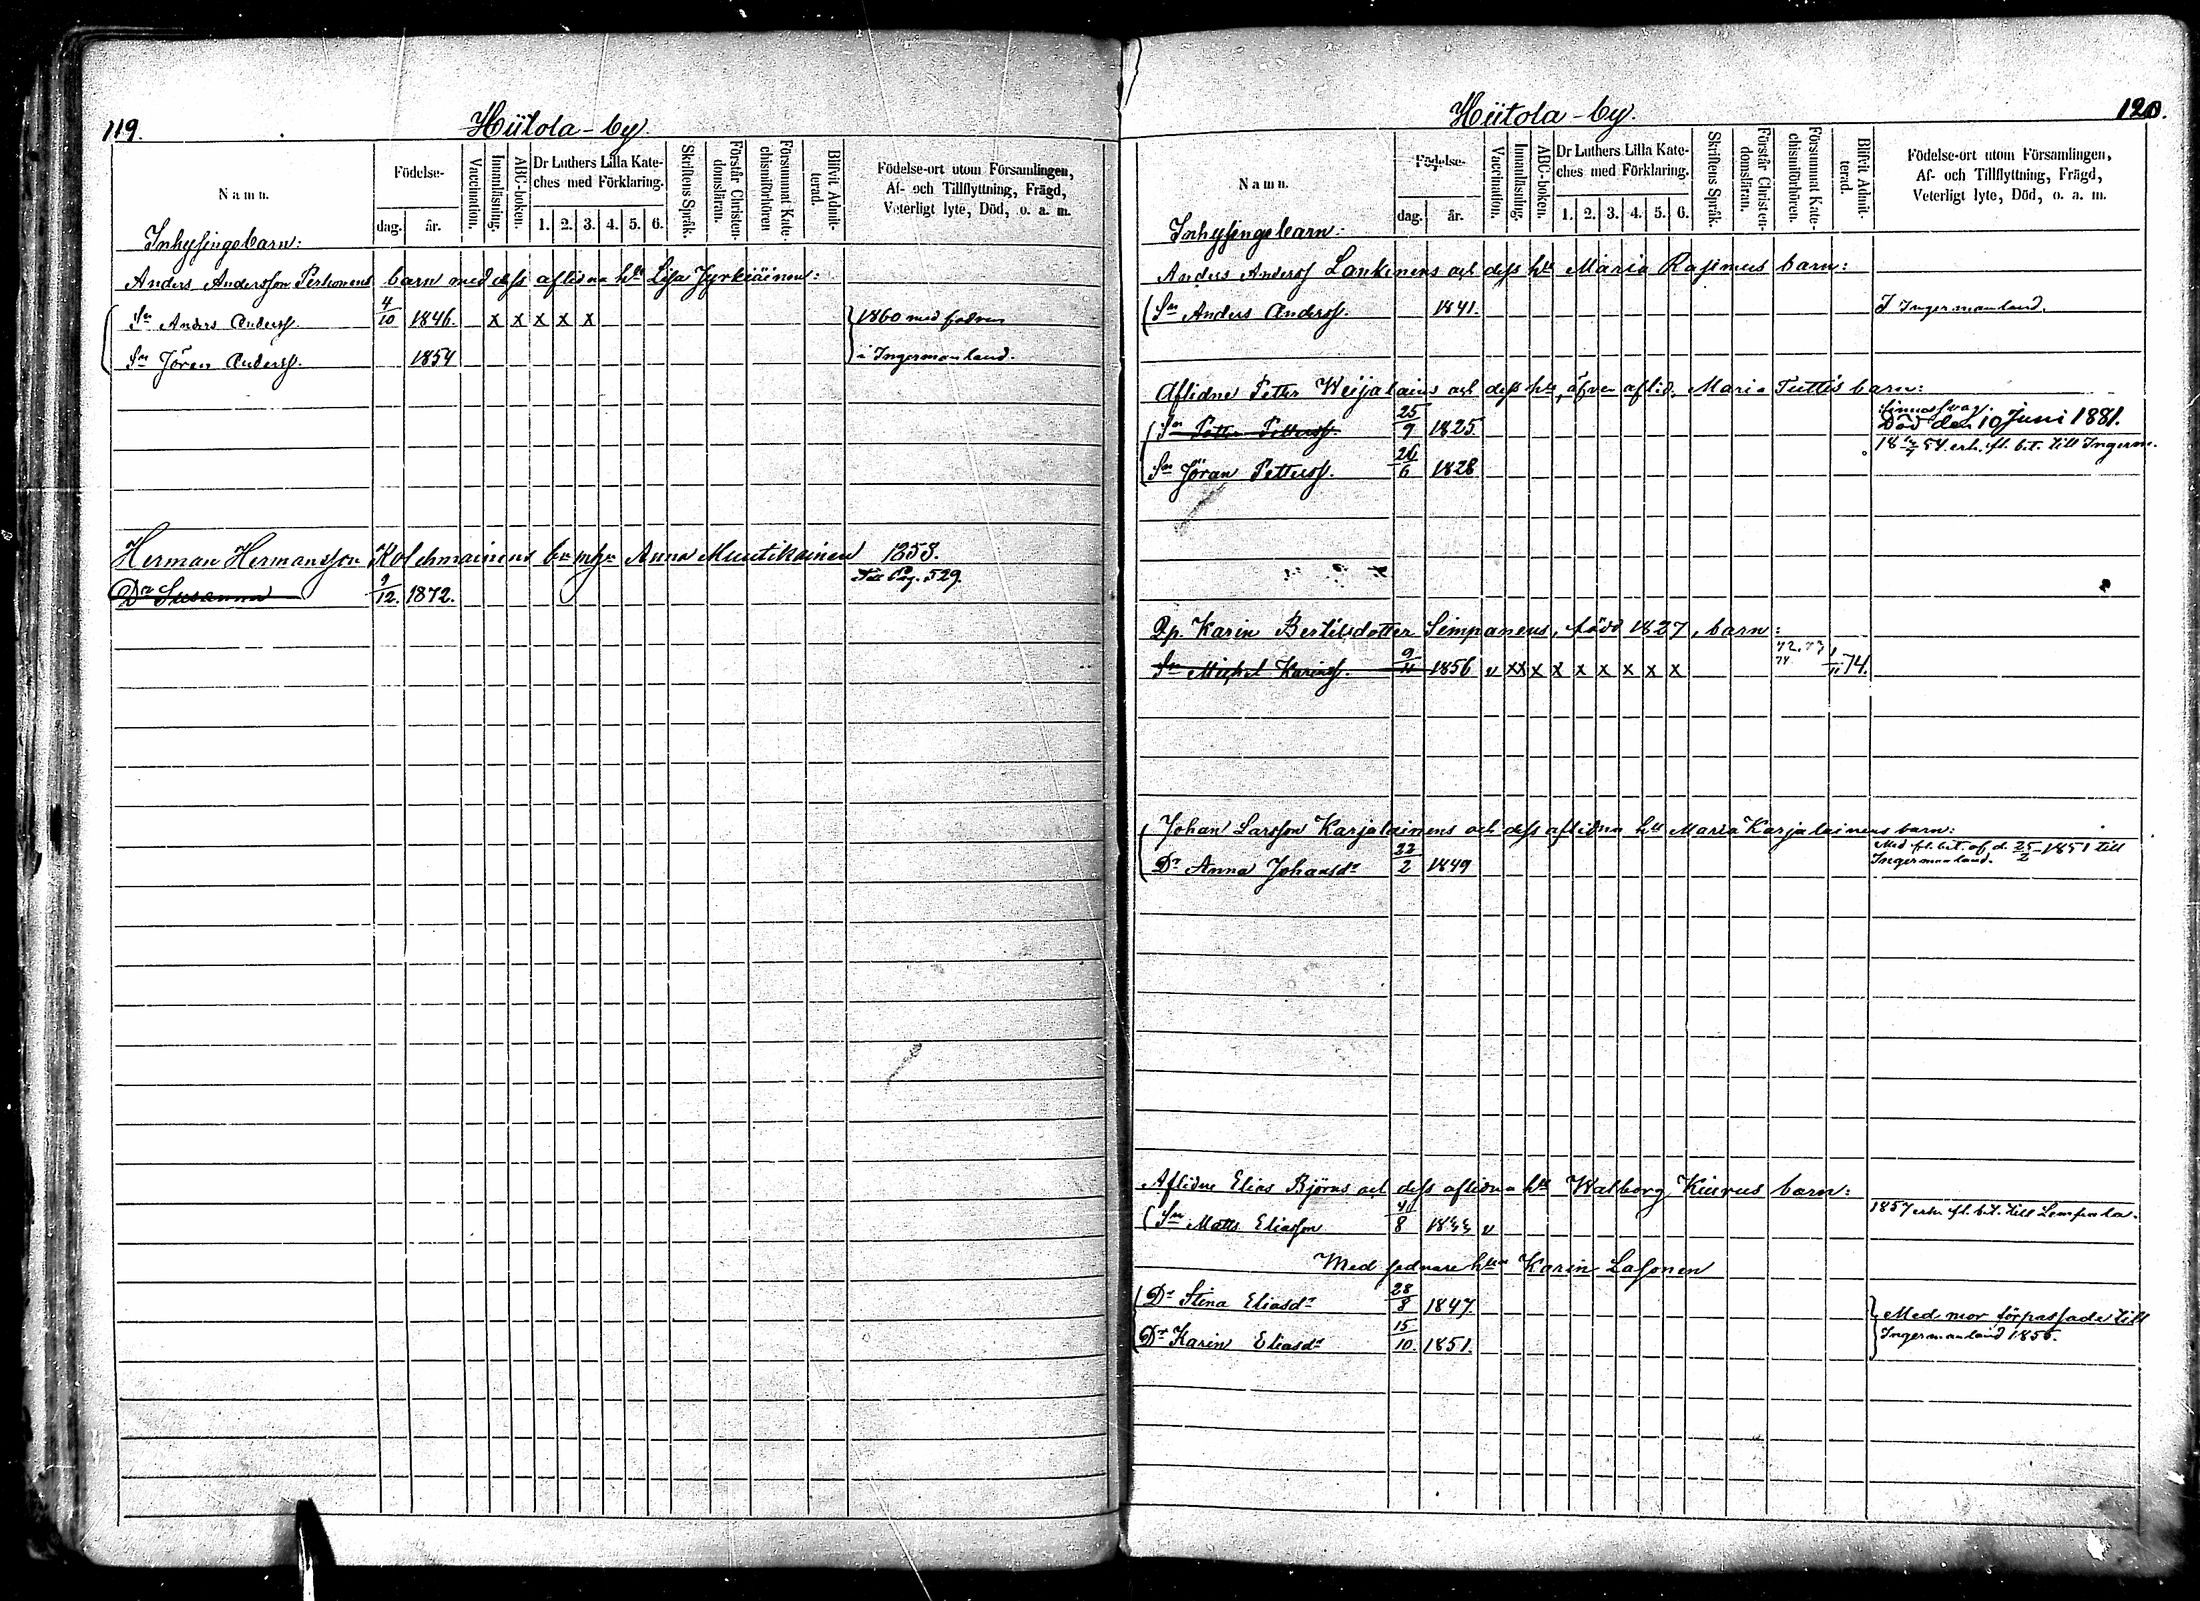 119.
Hiitola-by.
Namn.
Födelse-
dag. år.
Vaccination.
Innanläsning.
ABC-boken.
Dr Luthers Lilla Kate-
ches med Förklaring.
1. 2. 3. 4. 5. 6.
Skriftens Språk.
Förstår Christen-
domsläran.
Försummat Kate-
chismiförhören
Blifvit Admit-
terad.
Födelse-ort utom Församlingen,
Af- och Tillflyttning, Frägd,
Veterligt lyte, Död, o. a. m.
Inhysingebarn:
Anders Andersson barn med dess aflidna hu Lisa Jyrkiäinen:
Sn Anders Anderss. 4/10 1846. x x x x x 1860 med fadren
Sn Jören Anderss. 1854 i Ingermanland.
Herman Hermansson Kolehmainens Anna Muutikainen 1853.
Dr Susanna 9/12. 1872. Till Pag. 529.
120.
Hiitola-by.
Namn.
Födelse-
dag. år.
Vaccination.
Innanläsning.
ABC-boken.
Dr Luthers Lilla Kate-
ches med Förklaring.
1. 2. 3. 4. 5. 6.
Skriftens Språk.
Förstår Christen-
domsläran.
Försummat Kate-
chismiförhören.
Blifvit Admit-
terad.
Födelse-ort utom Församlingen,
Af- och Tillflyttning, Frägd,
Veterligt lyte, Död, o. a. m.
Inhysingebarn:
Anders Anderss Lankinens och dess hu Maria Rasimus barn:
Sn Anders Anderss. 1841. I Ingermanland.
Aflidne Petter Weijalains och dess hu, äfven aflid. Maria Tuttis barn:
Sinnessvag.
Sn Petter Petterss. 25/9 1825. Död den 10 Juni 1881.
Sn Jöran Petterss. 26/6 1828 54. erh. fl. bet. till Ingerm.
Qp. Karin Bertilsdotter Simpanens, född 1827, barn:
Sn Michel Karinss. 9/11 1856 v xx x x x x x x x 72. 73 74. 1/11 74.
Johan Larsson Karjalainens och dess aflidna hu Maria Karjalainens barn:
Dr Anna Johansdr 22/2 1849 Med fl. bet. af d. 25/2 1851 till
Ingermanland.
Aflidne Elias Björns och dess aflidna hu Walborg Kiurus barn:
Sn Matts Eliasson 8 v 1857 erh. fl. bet. till Lempala.
Med sednare hun Karin Lasonen
Dr Stina Eliasdr 28/8 1847. Med mor förpassade till
Dr Karin Eliasdr 15/10. 1851. Ingermanland 1856.